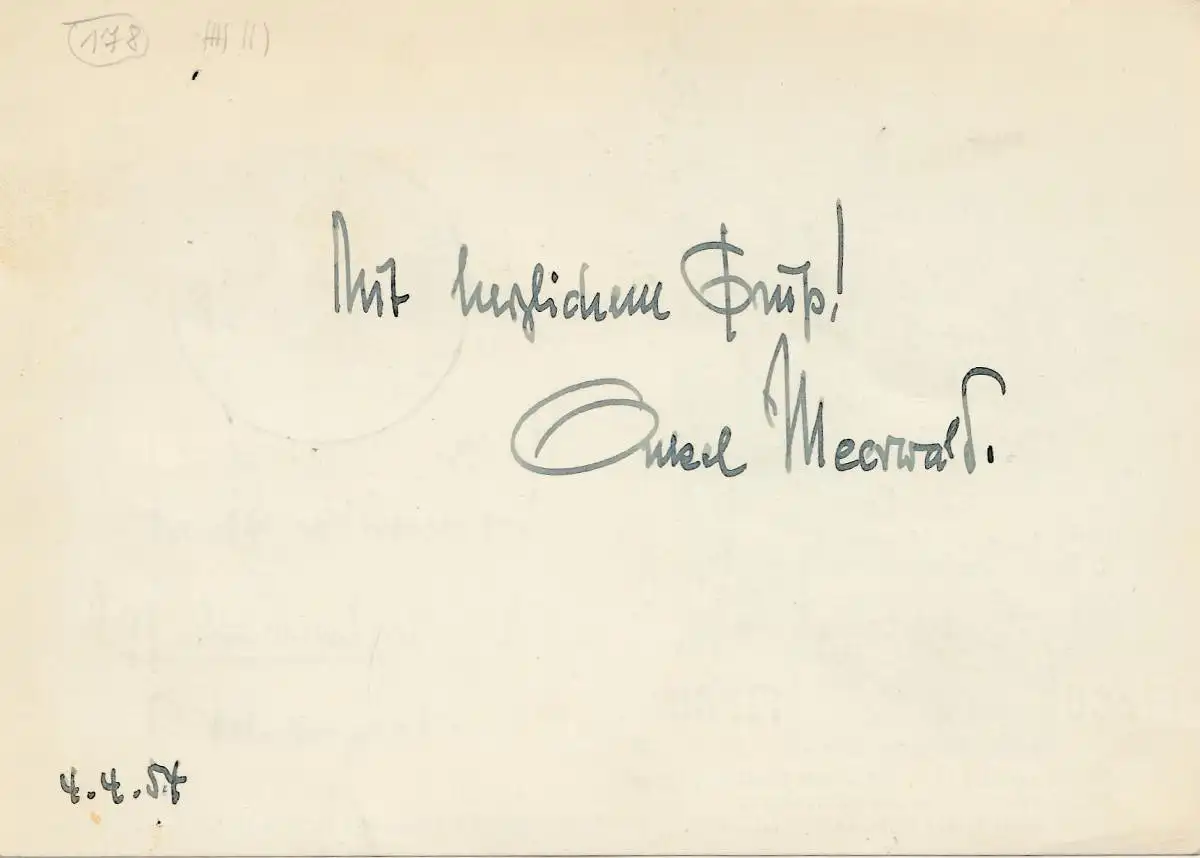 178
Mit herzlichem Gruß!
Onkel Meerwald.
4.4.54